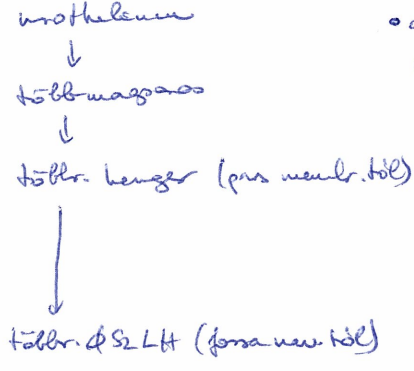 urothelium
↓
többmagsoros
↓
többr. henger (pars membr. tól)
↓
többr. φ SZ LH (fossa nav. tól)